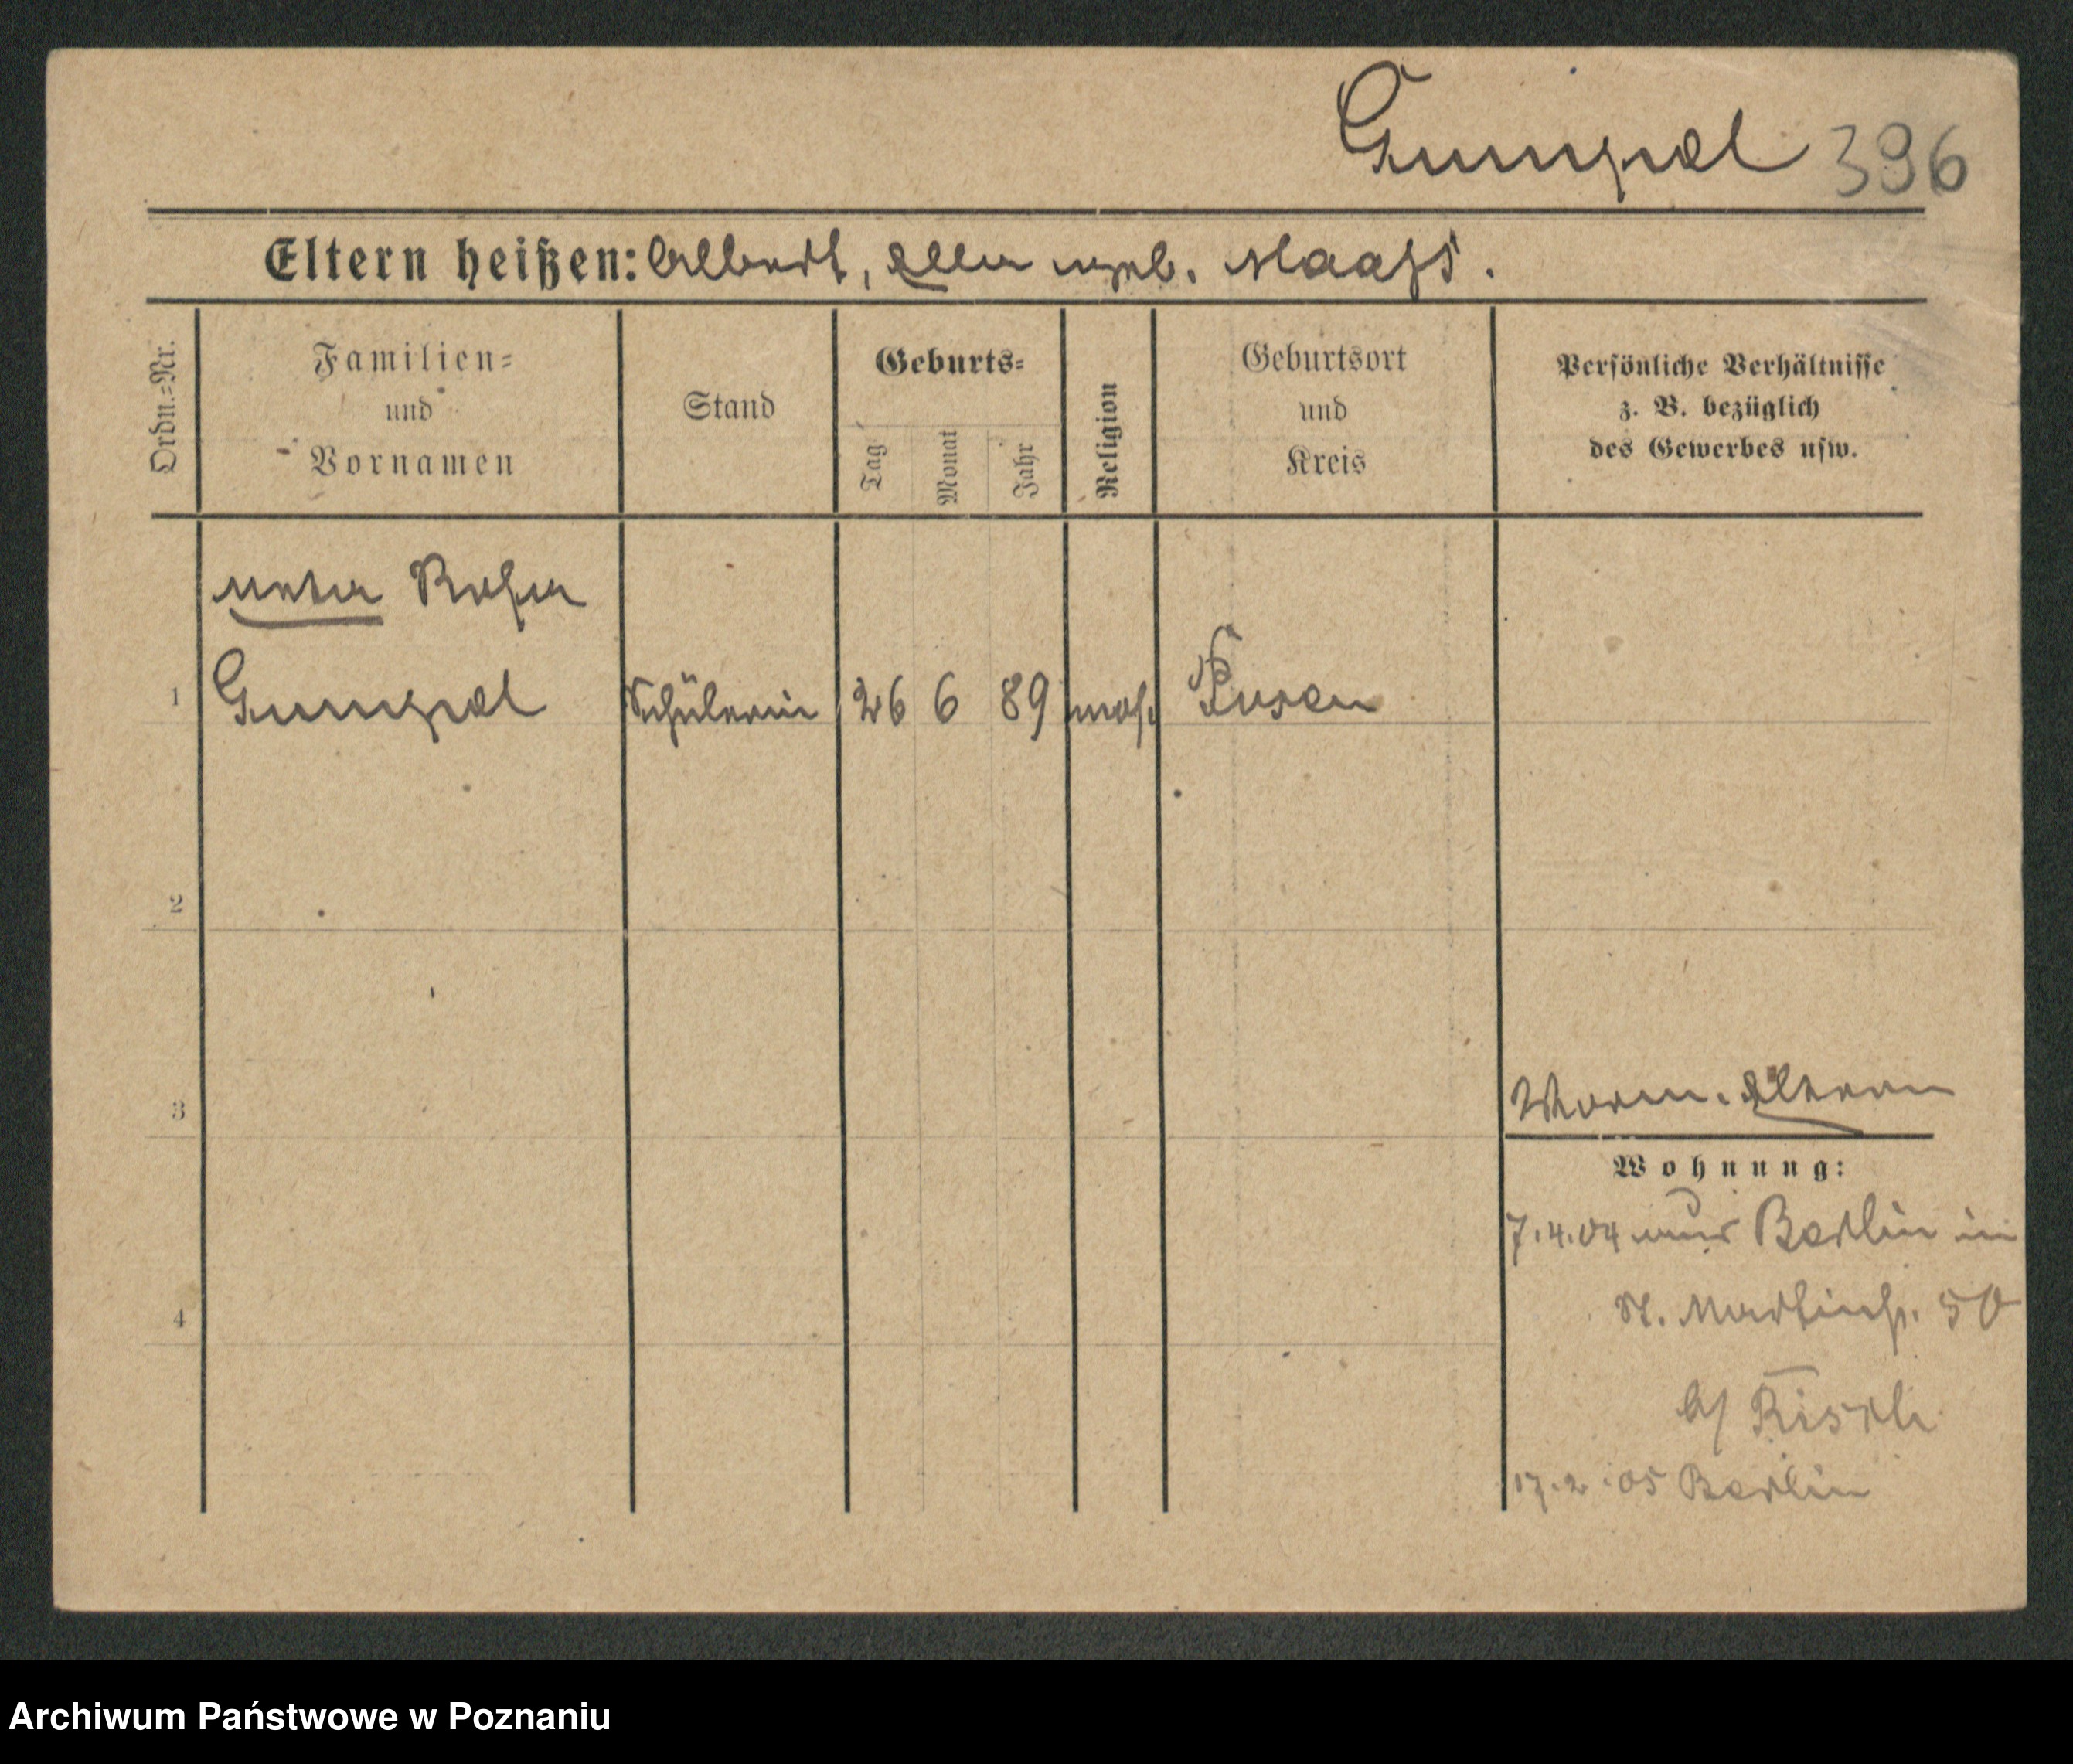 Gumpel 396
Eltern heißen: Albert, Ella geb. Maaß.
Ordn.=Nr.
Familien=
und
Vornamen
Stand
Geburts=
Tag
Monat
Jahr
Religion
Geburtsort
und
Kreis
Persönliche Verhältnisse
z. B. bezüglich
des Gewerbes usw.
1 Gumpel Schülerin 26 6 89 mos. Posen
2
3
Eltern
Wohnung:
7.4.04 aus Berlin in
St. Martinstr. 50
b/
4
17.2.05 Berlin
Archiwum Państwowe w Poznaniu